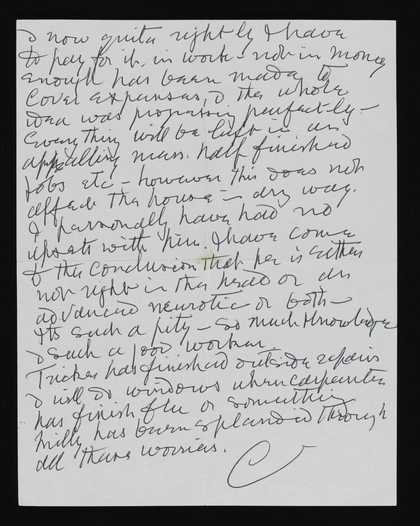 & now quite rightly I have
to pay for it. in work – not in money
enough has been made to
Cover expenses, & the whole
idea was progressing perfectly –
Everything will be left in an
appalling mess. half finished
jobs etc – however this does not
affect the house – any way.
I personally have had no
upsets with him. I have come
to the conclusion that he is either
not right in the head or an
advanced neurotic or both –
Its such a pity – so much Knowledge
& such a good worker
has finished outside repairs
& will do windows when carpenter
has finish flu or something
Milly has been splendid through
all these worries.